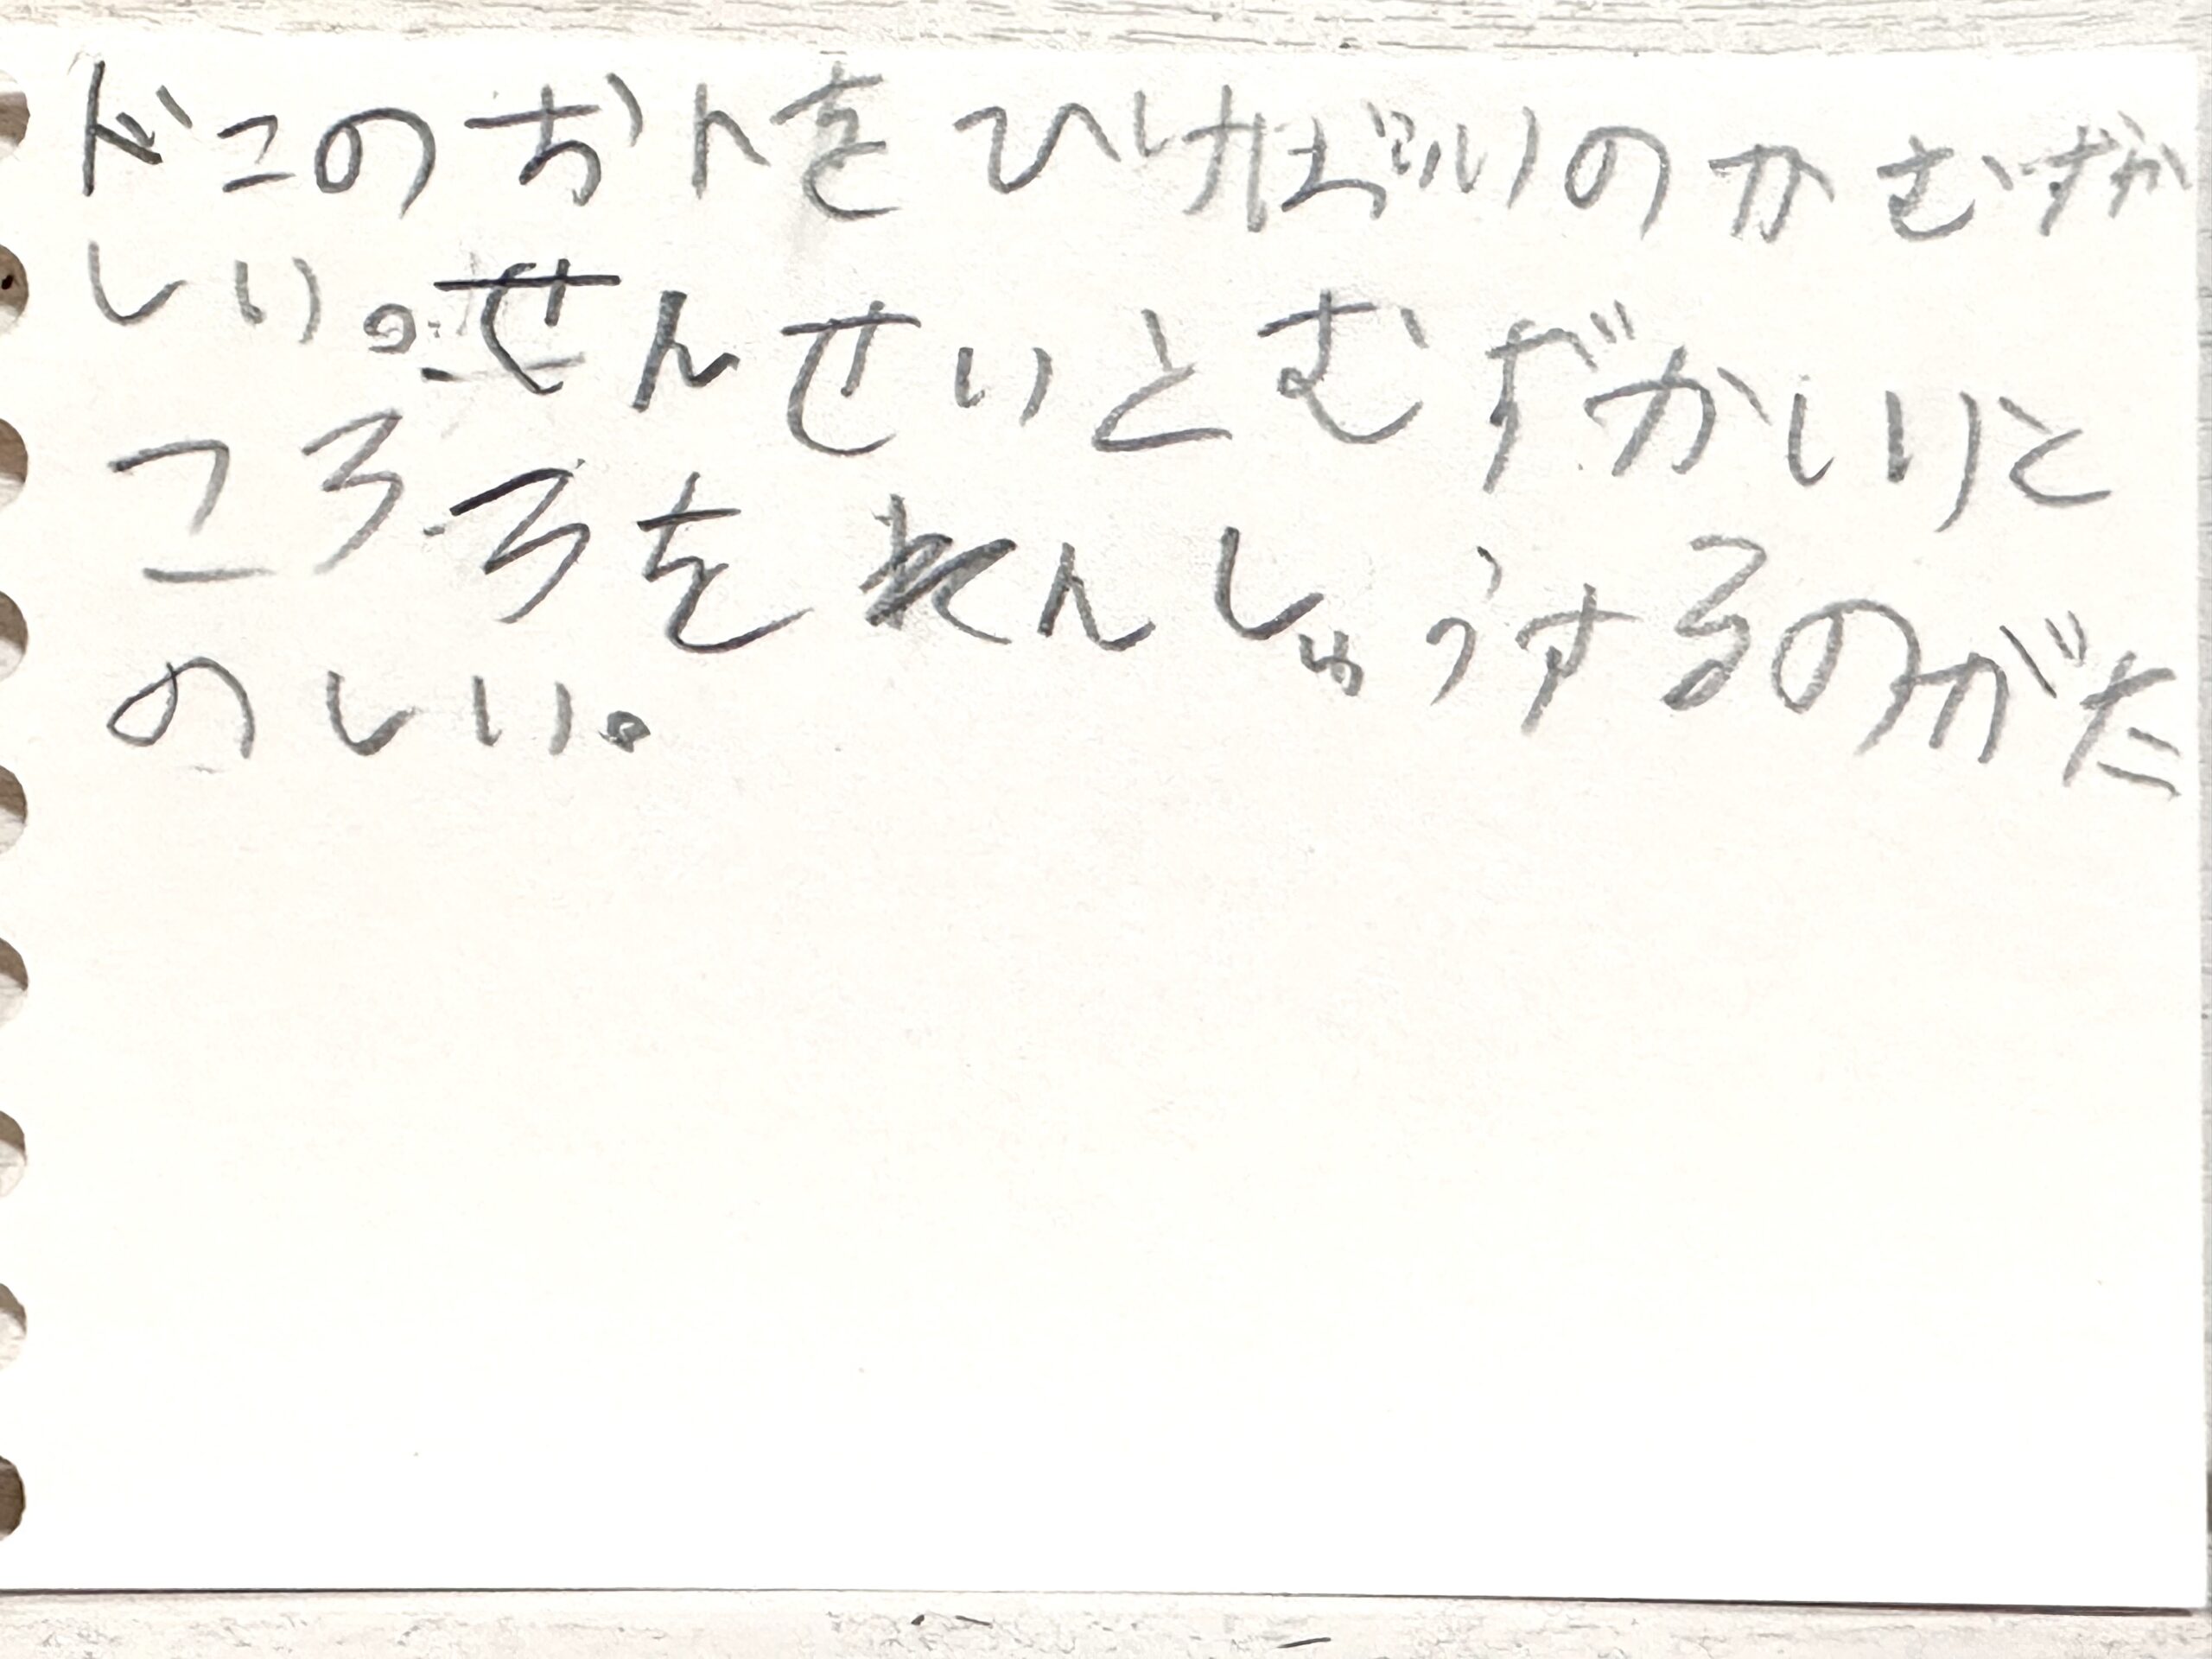 ドこのおトをひけばいいのかむずか
しい。せんせいとむずかしいと
ころろをれんしゅうするのがた
のしい。